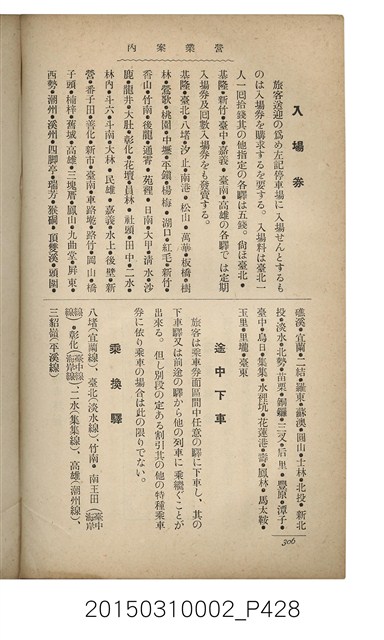 營業案內
入場券
旅客送迎の爲め左記停車場に入場せんとするも
のは入場券を購求するを要する。入場料は臺北一
人一回拾錢其の他指定の各驛は五錢。尙は臺北・
基隆・新竹・臺中・嘉義・臺南・高雄の各驛では定期
入場券及回數入場券をも發賣する。
基隆・臺北・八堵・汐止・南港・松山・萬華・板橋・樹
林・鶯歌・桃園・中壢・平鎭・楊梅・湖口・紅毛・新竹・
香山・竹南・後龍・通霄・苑裡・日南・大甲・清水・沙
鹿・龍井・大肚・彰化・花壇・員林・社頭・田中・二水・
林內・斗六・斗南・大林・民雄・嘉義・水上・後壁・新
營・番子田・善化・新市・臺南・車路墘・路竹・岡山・橋
子頭・楠梓・舊城・高雄・三塊厝・鳳山・九曲堂・屏東・
西勢・潮州・溪州・四脚亭・瑞芳・猴硐・頂雙溪・頭圍・
礁溪・宜蘭・二結・羅東・蘇澳・圓山・士林・北投・新北
投・淡水・北勢・苗栗・銅鑼・三叉・后里・豐原・潭子・
臺中・烏日・集集・水裡坑・花蓮港・壽・鳳林・馬太鞍・
玉里・里壠・臺東
途中下車
旅客は乘車券面區間中任意の驛に下車し、其の
下車驛又は前途の驛から他の列車に乘繼ぐことが
出來る。但し別段の定ある割引其の他の特種乘車
券に依り乘車の場合は此の限りでない。
乘換驛
八堵(宜蘭線)、臺北(淡水線)、竹南・南王田(臺中線海岸
線)、彰化(臺中線海岸線)、二水(集集線)、高雄(潮州線)、
三貂嶺(平溪線)
306
20150310002_P428